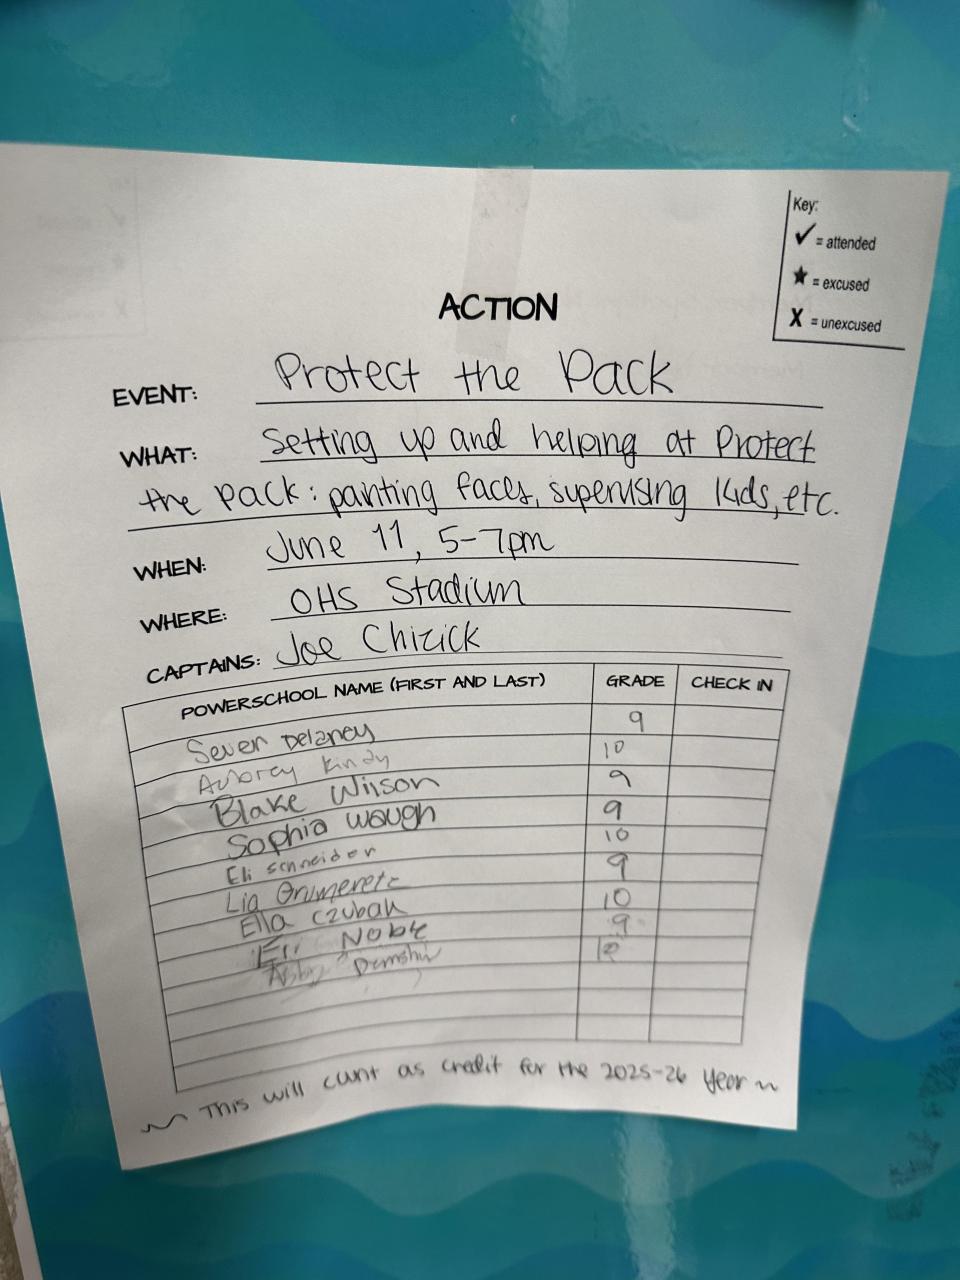 Key:
✓ = attended
★ = excused
X = unexcused
ACTION
EVENT: Protect the Pack
WHAT: Setting up and helping at Protect
the pack: painting faces, supervising kids, etc.
WHEN: June 11, 5-7pm
WHERE: OHS Stadium
CAPTAINS: Joe Chizick
POWERSCHOOL NAME (FIRST AND LAST) GRADE CHECK IN
Sever Delaney 9
Aubrey Kindy 10
Blake Wilson 9
Sophia Waugh 9
Eli Schneider 10
Lia 9
Ella Czubak 10
Noble 9
10
~ This will count as credit for the 2025-26 year ~